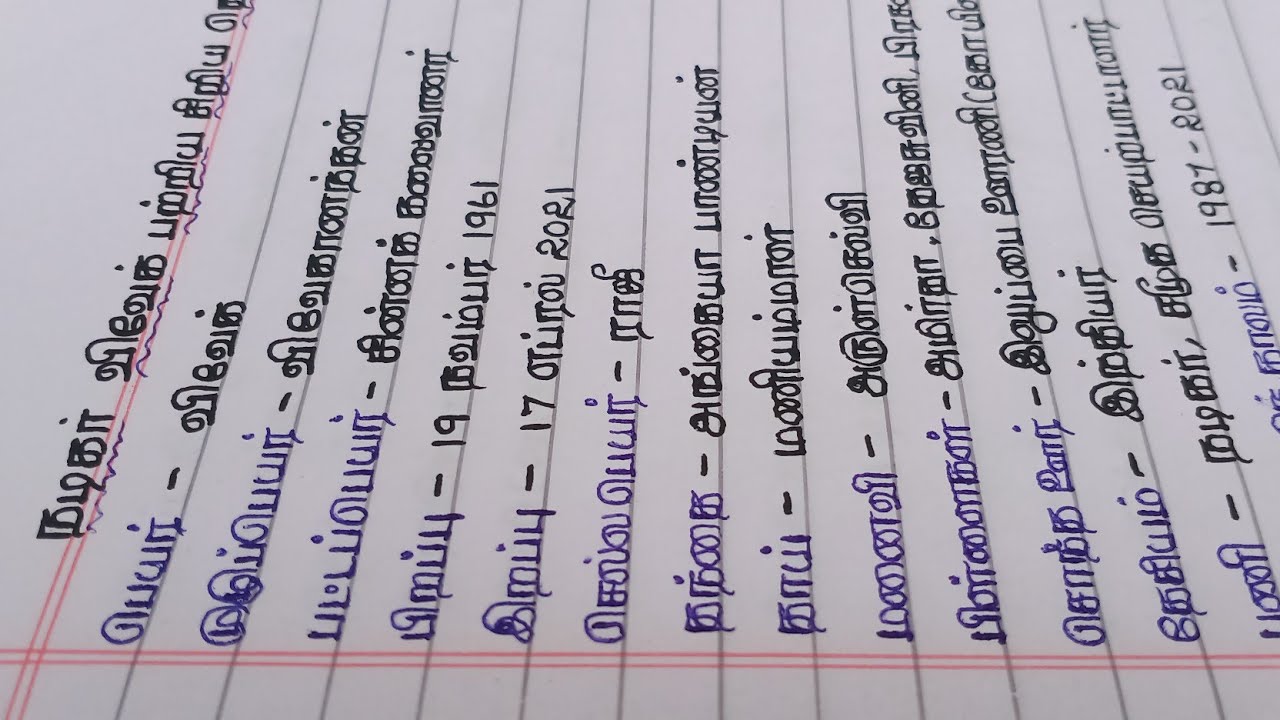 நடிகர் விவேக் பற்றிய சிறிய
பெயர் - விவேக்
முழுப்பெயர் - விவேகானந்தன்
பட்டப்பெயர் - சின்னக் கலைவாணர்
பிறப்பு - 19 நவம்பர் 1961
இறப்பு - 17 எப்ரல் 2021
செல்லபெயர் - ராஜீ
தந்தை - அங்கையா பாண்டியன்
தாய் - மணியம்மாள்
மனைவி - அருள்செல்வி
பிள்ளைகள் - அமிர்தா, தேஜசுவினி, பிரச
சொந்த ஊர் - இலுப்பை ஊரணி (கோயி
தேசியம் - இந்தியர்
பணி - நடிகர், சமூக செயற்பாட்டாளர்
1987 - 2021